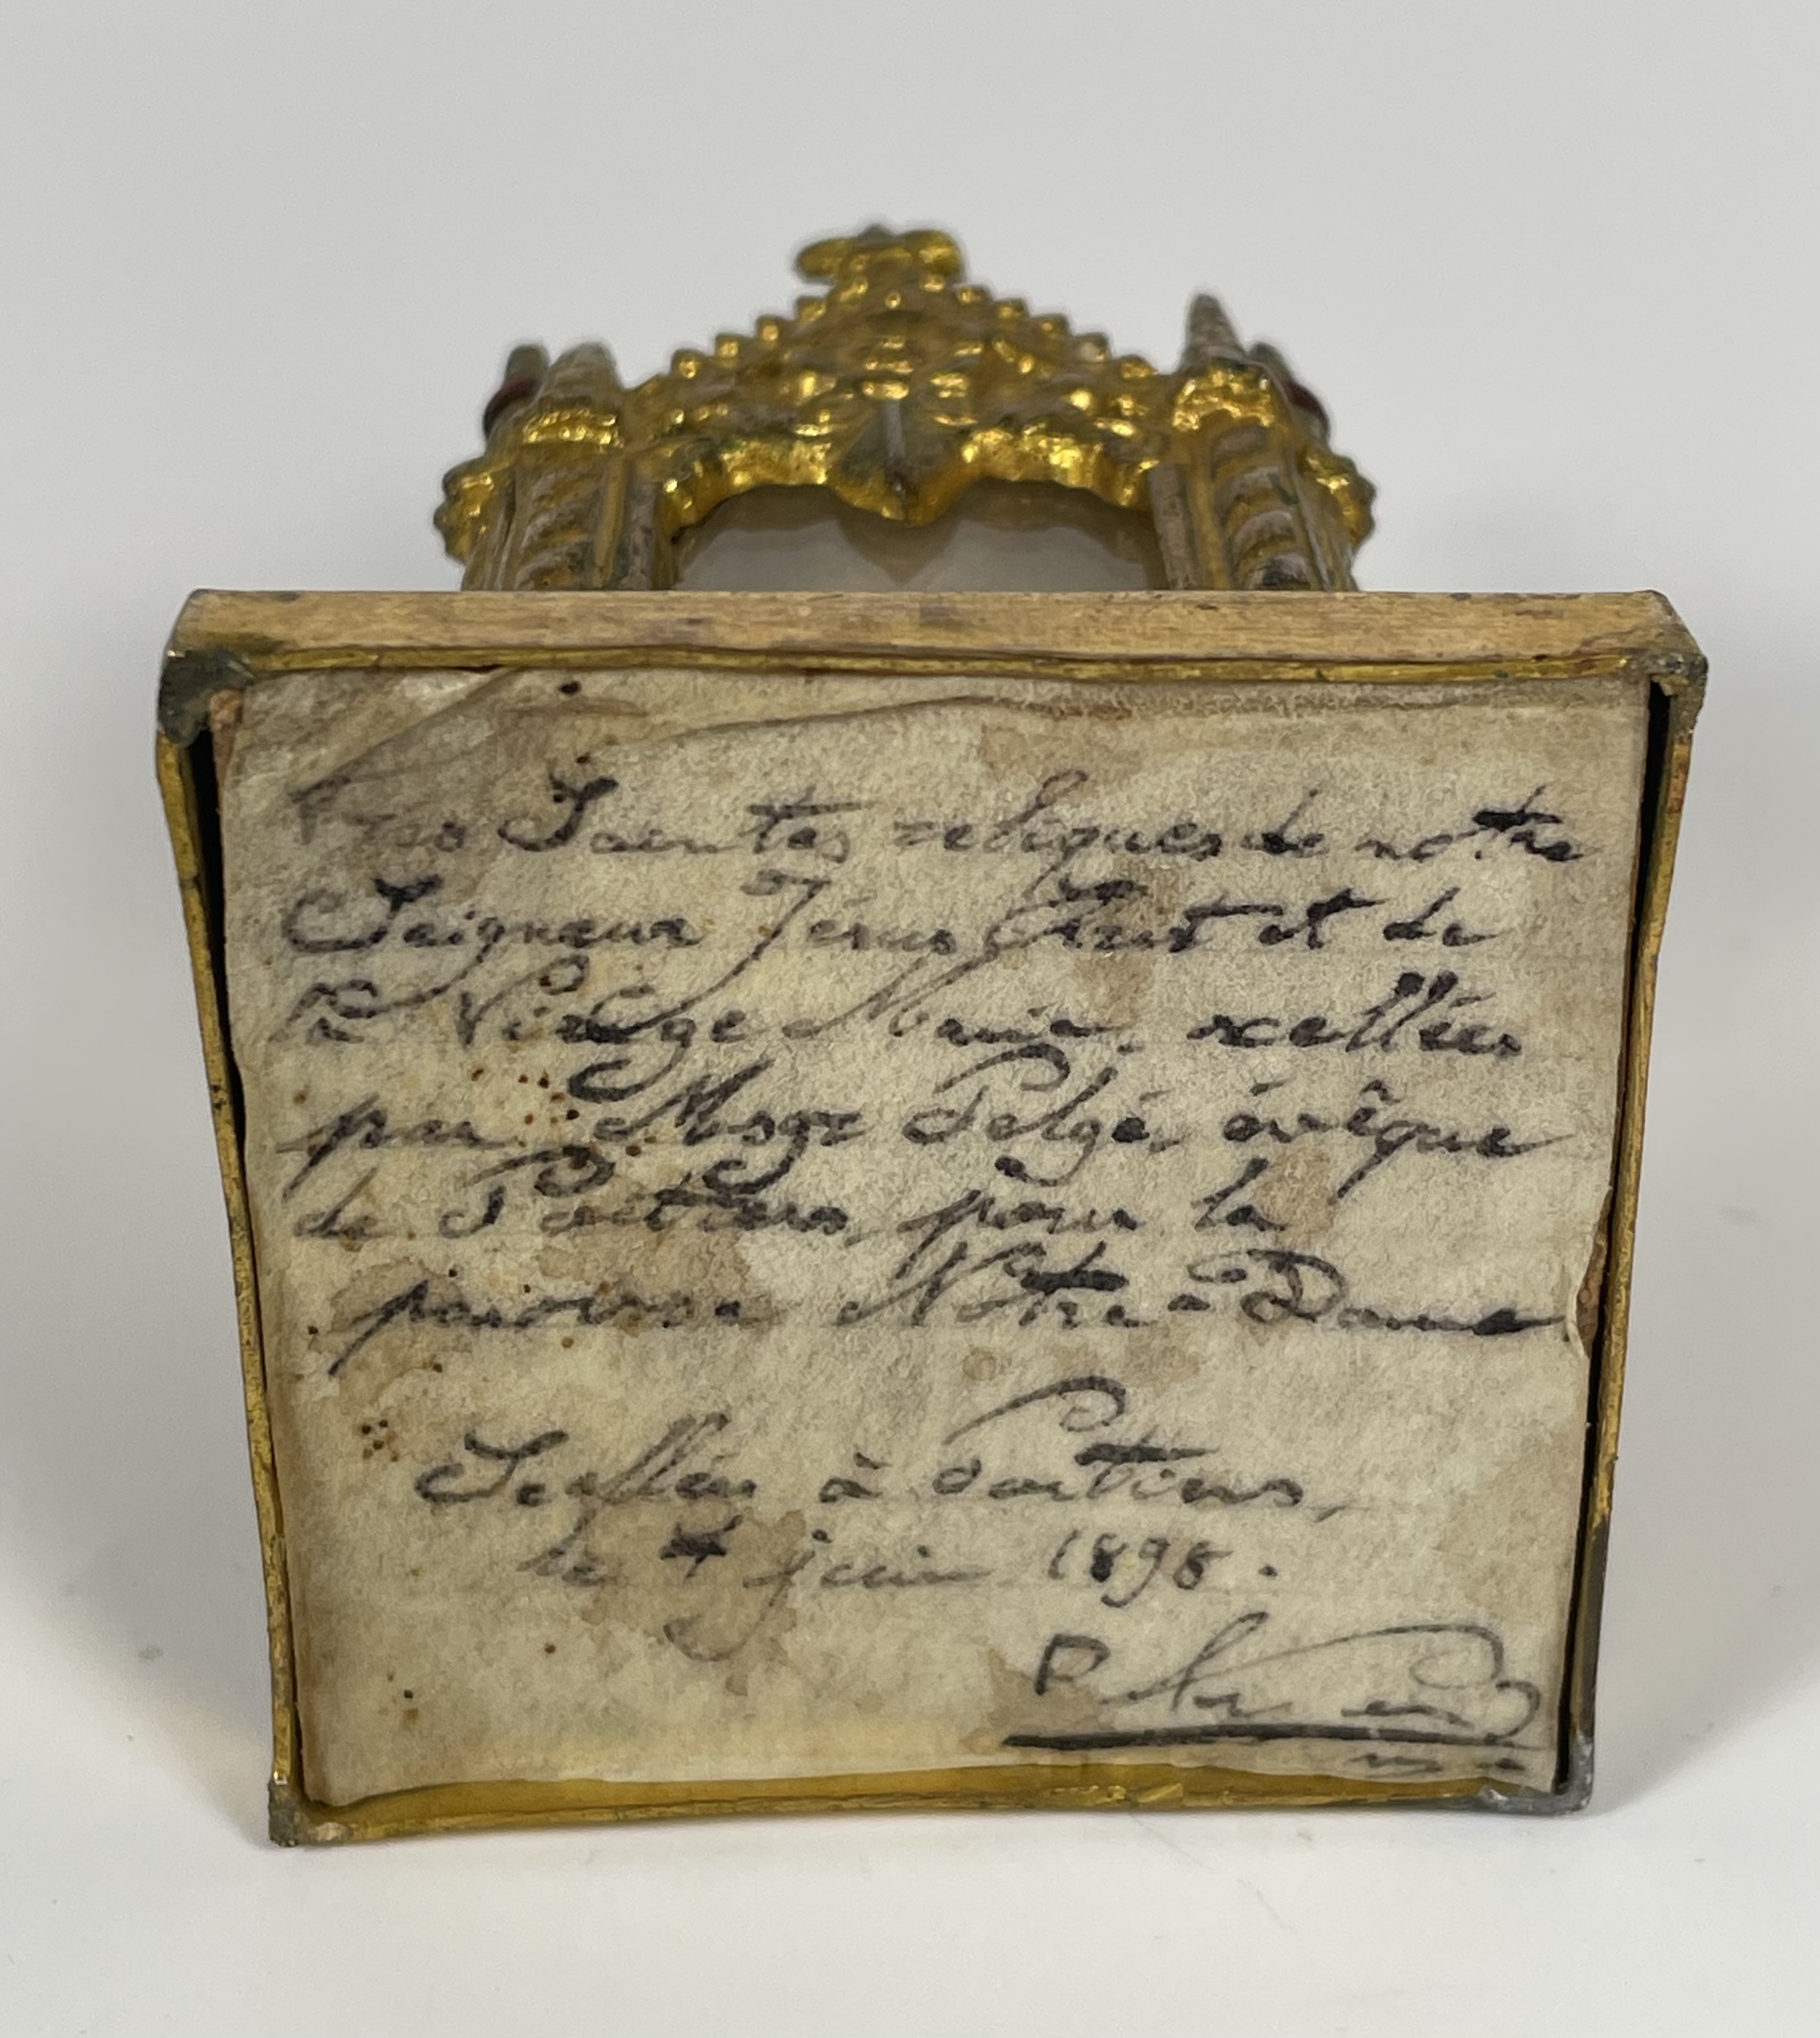 Très Saintes reliques de notre
Seigneur Jésus Christ et de
la Vierge Marie, scellées
par Msgr Pelgé, évêque
de Poitiers, pour la
paroisse Notre-Dame
Scellées à Poitiers,
le 4 juin 1898.
P.